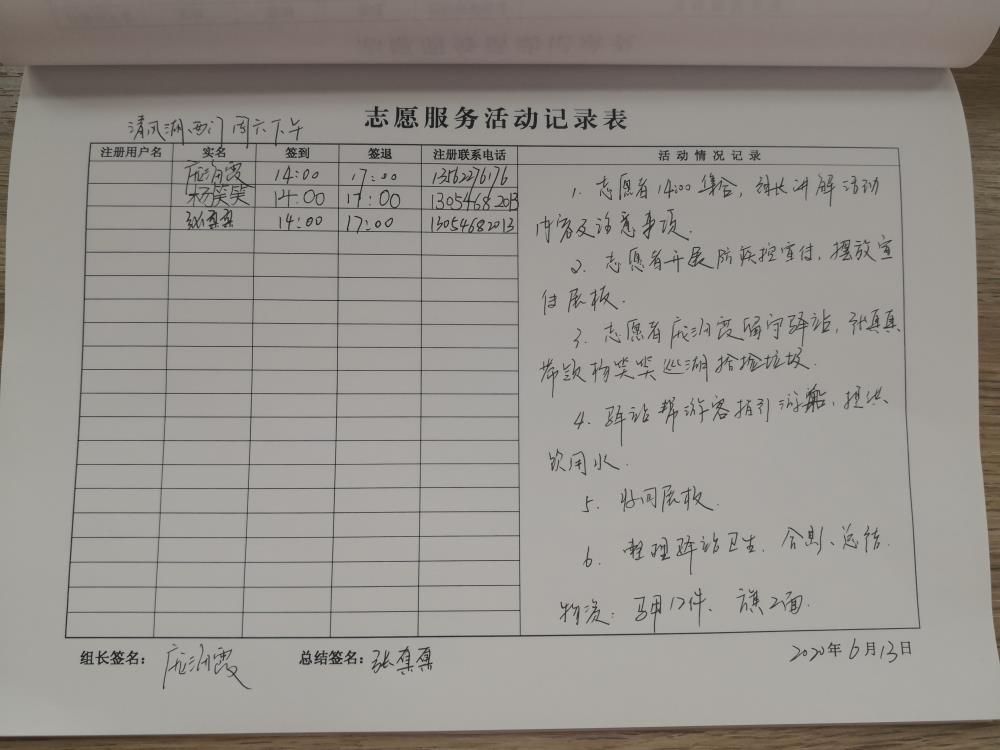 志愿服务活动记录表
清风湖西门 周六下午
注册用户名 实名 签到 签退 注册联系电话 活动情况记录
庞润霞 14:00 17:00 13562276176
杨笑笑 14:00 17:00 13054682013
张真真 14:00 17:00 13054682013
1. 志愿者14:00集合,组长讲解活动
内容及注意事项.
2. 志愿者开展防疾控宣传,摆放宣
传展板.
3. 志愿者庞润霞留守驿站,张真真
带领杨笑笑巡湖捡捡垃圾.
4. 驿站帮游客指引游船,提供
饮用水.
5. 收回展板.
6. 整理驿站卫生、合影、总结.
物资: 马甲12件、旗2面.
组长签名: 庞润霞 总结签名: 张真真 2020年6月13日